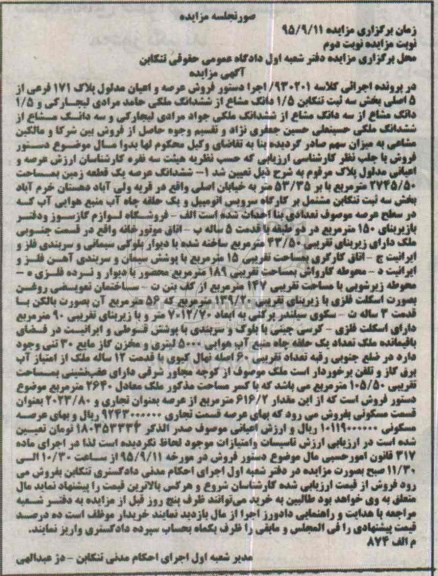 صورتجلسه مزایده
زمان برگزاری مزایده ۹۵/۹/۱۱
نوبت مزایده نوبت دوم
محل برگزاری مزایده دفتر شعبه اول دادگاه عمومی حقوقی تنکابن
آگهی مزایده
در پرونده اجرائی کلاسه ۹۳۰۲۰۱/ اجرا دستور فروش عرصه و اعیان مدلول پلاک ۱۷۱ فرعی از
۵ اصلی بخش سه ثبت تنکابن ۱/۵ دانگ مشاع از ششدانگ ملکی حامد مرادی لیچارکی و ۱/۵
دانگ مشاع از سه دانگ مشاع از ششدانگ ملکی جواد مرادی لیچارکی و سه دانگ مشاع از
ششدانگ ملکی حسینعلی حسین جعفری نژاد و تقسیم وجوه حاصل از فروش بین شرکا و مالکین
مشاعی به میزان سهم صادر گردیده بنا به تقاضای وکیل محکوم لها بدوا سال موضوع دستور
فروش با جلب نظر کارشناسی ارزیابی که حسب نظریه هیئت سه نفره کارشناسان ارزش عرصه و
اعیانی مدلول پلاک مرقوم به شرح ذیل تعیین شد ۱- ششدانگ عرصه یک قطعه زمین بمساحت
۲۷۴۵/۵۰ مترمربع با بر ۵۳/۳۵ متر به خیابان اصلی واقع در قریه ولی آباد دهستان خرم آباد
بخش سه ثبت تنکابن مشتمل بر کارگاه سرویس اتومبیل و یک حلقه چاه آب منبع هوایی آب که
در سطح عرصه موصوف تعدادی بنا احداث شده است الف - فروشگاه لوازم گازسوز ودفتر
بازیربنای ۱۵۰ مترمربع در دو طبقه با قدمت ۵ ساله ب - اتاق موتورخانه واقع در قسمت جنوبی
ملک دارای زیربنای تقریبی ۴۳/۵۰ مترمربع ساخته شده با دیوار بلوکی سیمانی و سربندی فلز و
ایرانیت ج - اتاق کارگری بمساحت تقریبی ۱۵ مترمربع با پوشش سیمان و سربندی آهن و فلز و
ایرانیت د - محوطه کارواش بمساحت تقریبی ۱۸۹ مترمربع محصور با دیوار و نرده فلزی ه -
محوطه زیرشویی با مساحت تقریبی ۱۴۷ مترمربع از کف بتن ت - ساختمان تعویضی روغن
بصورت اسکلت فلزی با زیربنای تقریبی ۱۳۹/۲۰ مترمربع که ۵۶ مترمربع آن بصورت بالکن با
قدمت ۳ ساله ث - سکوی سیلندر پرکنی به ابعاد ۷۰/۱۲/۷۰ متر و با زیربنای تقریبی ۹۰ مترمربع
دارای اسکلت فلزی - کرسی چینی با بلوک و سربندی با پوشش قنوطی و ایرانیت در فضای
باقیمانده ملک تعداد یک حلقه چاه منبع آب هوایی ۵۰۰۰ لیتری و مخزن گاز مایع ۳۰ تنی وجود
دارد در ضلع جنوبی رقبه تعداد تقریبی ۶۰ اصله نهال کیوی با قدمت ۱۲ ساله ملک از امتیاز آب
برق گاز و تلفن برخوردار است ملک موصوف از کوچه مجاور شرقی دارای عقب نشینی بمساحت
تقریبی ۱۰۵/۵۰ مترمربع می باشد که با کسر مساحت مذکور ملک معادل ۲۶۴۰ مترمربع موضوع
دستور فروش است که از این مقدار ۶۱۶/۲ مترمربع از عرصه بعنوان تجاری و ۲۰۲۳/۸۰ بعنوان
قسمت مسکونی بفروش می رود که بهای عرصه قسمت تجاری ۹۲۴۳۰۰۰۰۰۰ ریال و بهای عرصه
مسکونی ۱۰۱۱۹۰۰۰۰۰۰ ریال و ارزش اعیانی موصوف صدر الذکر ۱۸۰۳۵۳۳۳۴ تومان تعیین
شده است در ارزیابی ارزش تاسیسات و امتیازات موجود لحاظ نگردیده است لذا در اجرای ماده
۳۱۷ قانون امورحسبی مال موضوع دستور فروش در مورخه ۹۵/۹/۱۱ از ساعت ۱۰/۳۰ الی
۱۱/۳۰ صبح بصورت مزایده در دفتر شعبه اول اجرای احکام مدنی دادگستری تنکابن بفروش می
رود فروش از قیمت ارزیابی شده کارشناسان شروع و هرکس بالاترین قیمت را پیشنهاد نماید مال
متعلق به وی خواهد بود طالبین به خرید می‌توانند ظرف پنج روز قبل از مزایده به دفتر شعبه
مراجعه با هدایت و راهنمایی دادورز اجرا از مال بازدید نمایند خریدار موظف است ده درصد
قیمت پیشنهادی را فی المجلس و مابقی را ظرف یکماه بحساب سپرده دادگستری واریز نمایند.
م الف ۸۷۴
مدیر شعبه اول اجرای احکام مدنی تنکابن - دژ عبدالهی